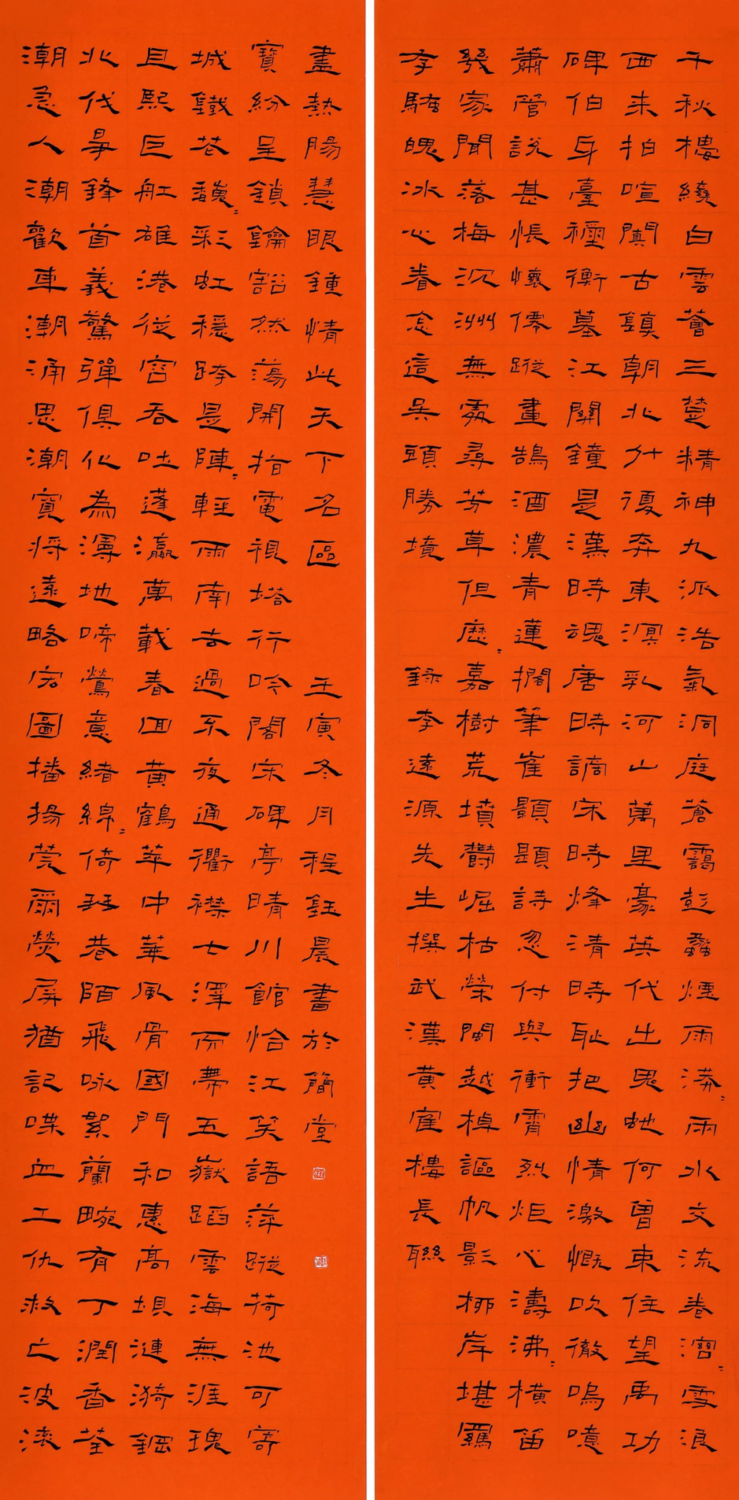 千秋樓繞白雲薈三楚精神九派浩氣洞庭蒼靄彭蠡煙雨漭〻兩水交流卷滔〻雪浪
西來拍喧闐古鎮朝北斗復奔東溟乳河山萬里豪英代出龜虵何曾束住望禹功
碑伯牙臺禰衡墓江關鐘是漢時魂唐時謫宋時烽清時恥把幽情激慨吹徹嗚噫
蕭管說甚悵懷僊蹤畫鵠酒濃青蓮擱筆崔顥題詩忽付與衝霄烈炬心濤沸〻橫笛
幾家聞落梅沉洲無處尋芳草但歷〻嘉樹荒墳鬱崛枯榮閩越棹謳帆影柳岸堪羈
李騷魄冰心眷念這吳頭勝境 錄李遠源先生撰武漢黃寉樓長聯
潮急人潮歡車潮涌思潮寶將遠略宏圖播揚莞爾熒屏猶記喋血工仇救亡波濤
北伐鋒首義驚彈俱化為渾地啼鶯意緒綿〻倚琴巷陌飛詠絮蘭畹有丁潤香荃
且熙巨舡雄港從容吞吐蓬瀛萬載春回黃鶴華中華風骨國門和惠高塤漣漪鋼
城鐵花馥〻彩虹穩跨是陣〻輕雨南去過不夜通衢襟七澤而帶五嶽蹈雲海無涯瑰
寶紛呈鎖鑰豁然蕩開指電視塔行吟閣宋碑亭晴川館恰江笑語萍蹤荷池可寄
盡熱腸慧眼鍾情此天下名區 壬寅冬月程鈺晨書於簡堂